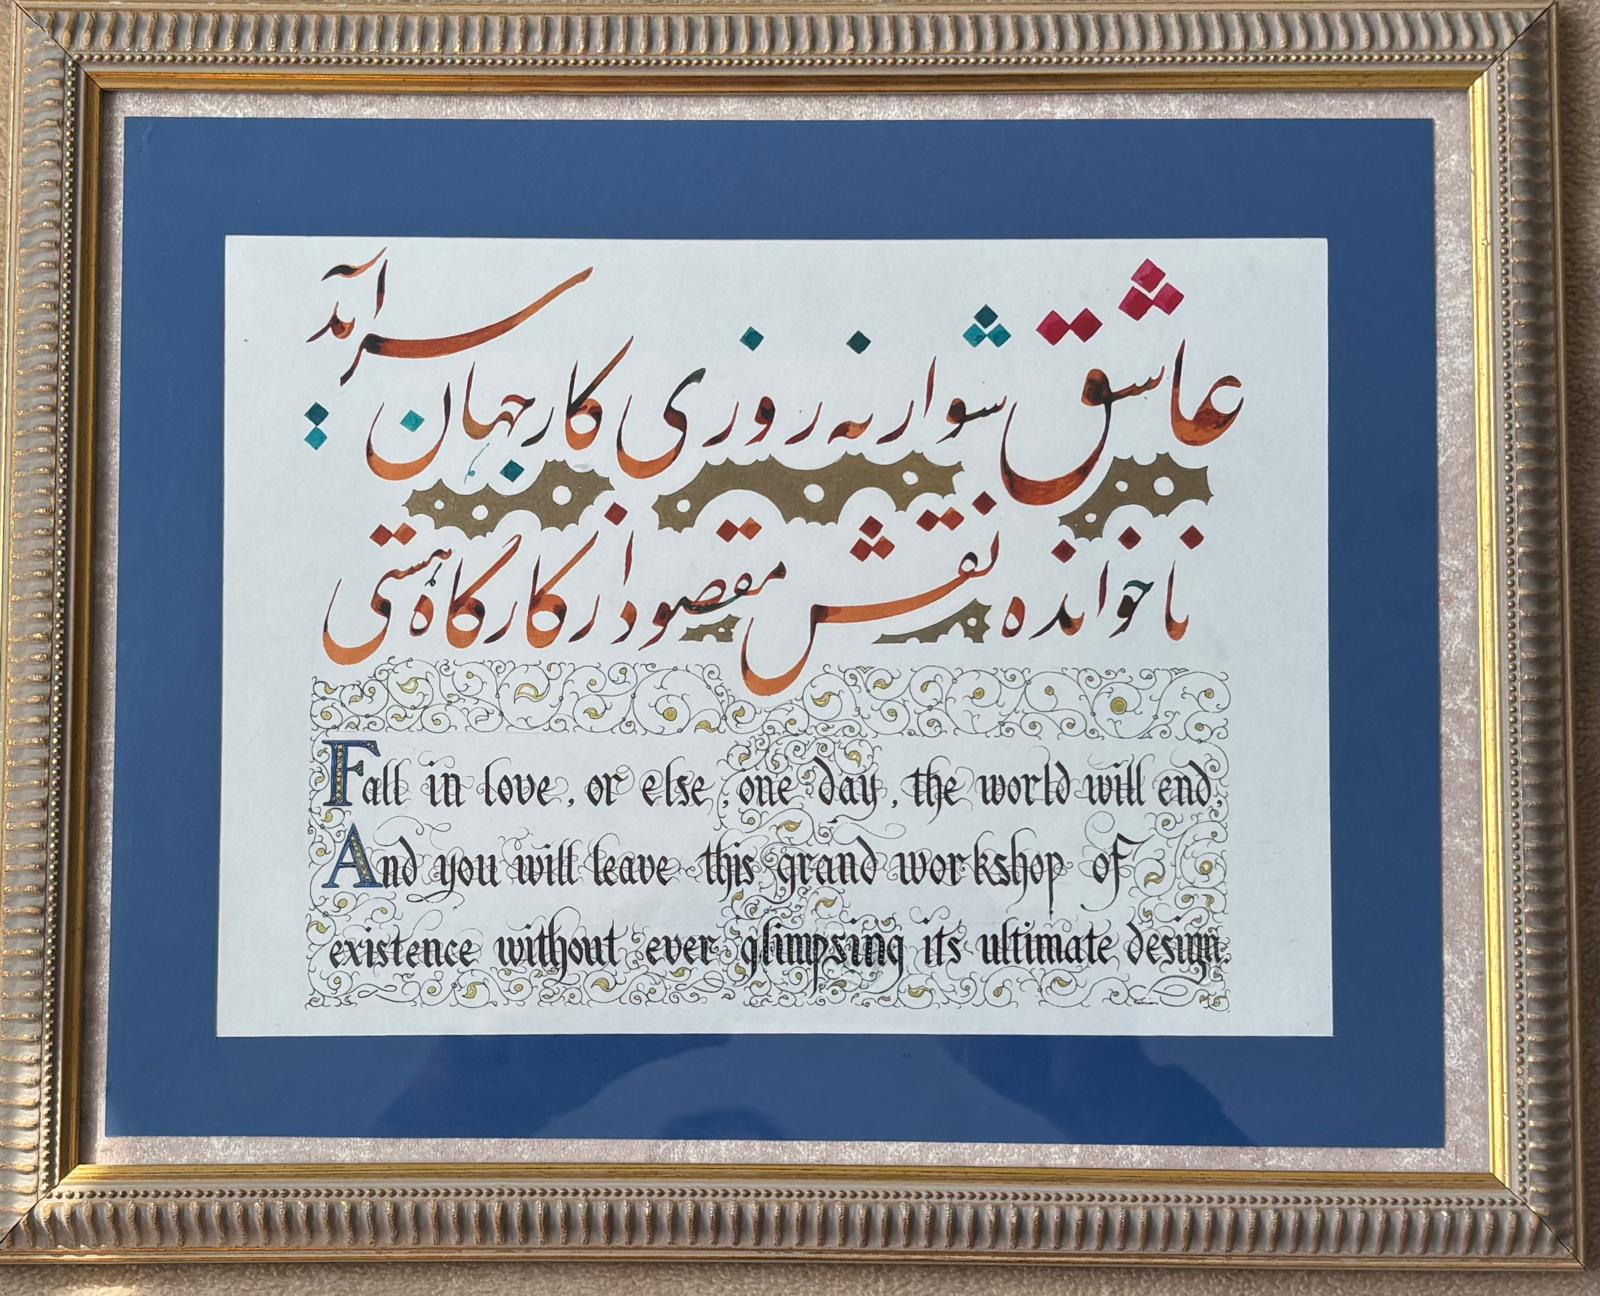 عاشق شو ار نه روزی کار جهان سر آید
ناخوانده نقش مقصود از کارگاه هستی
Fall in love, or else, one day, the world will end,
And you will leave this grand workshop of
existence without ever glimpsing its ultimate design.